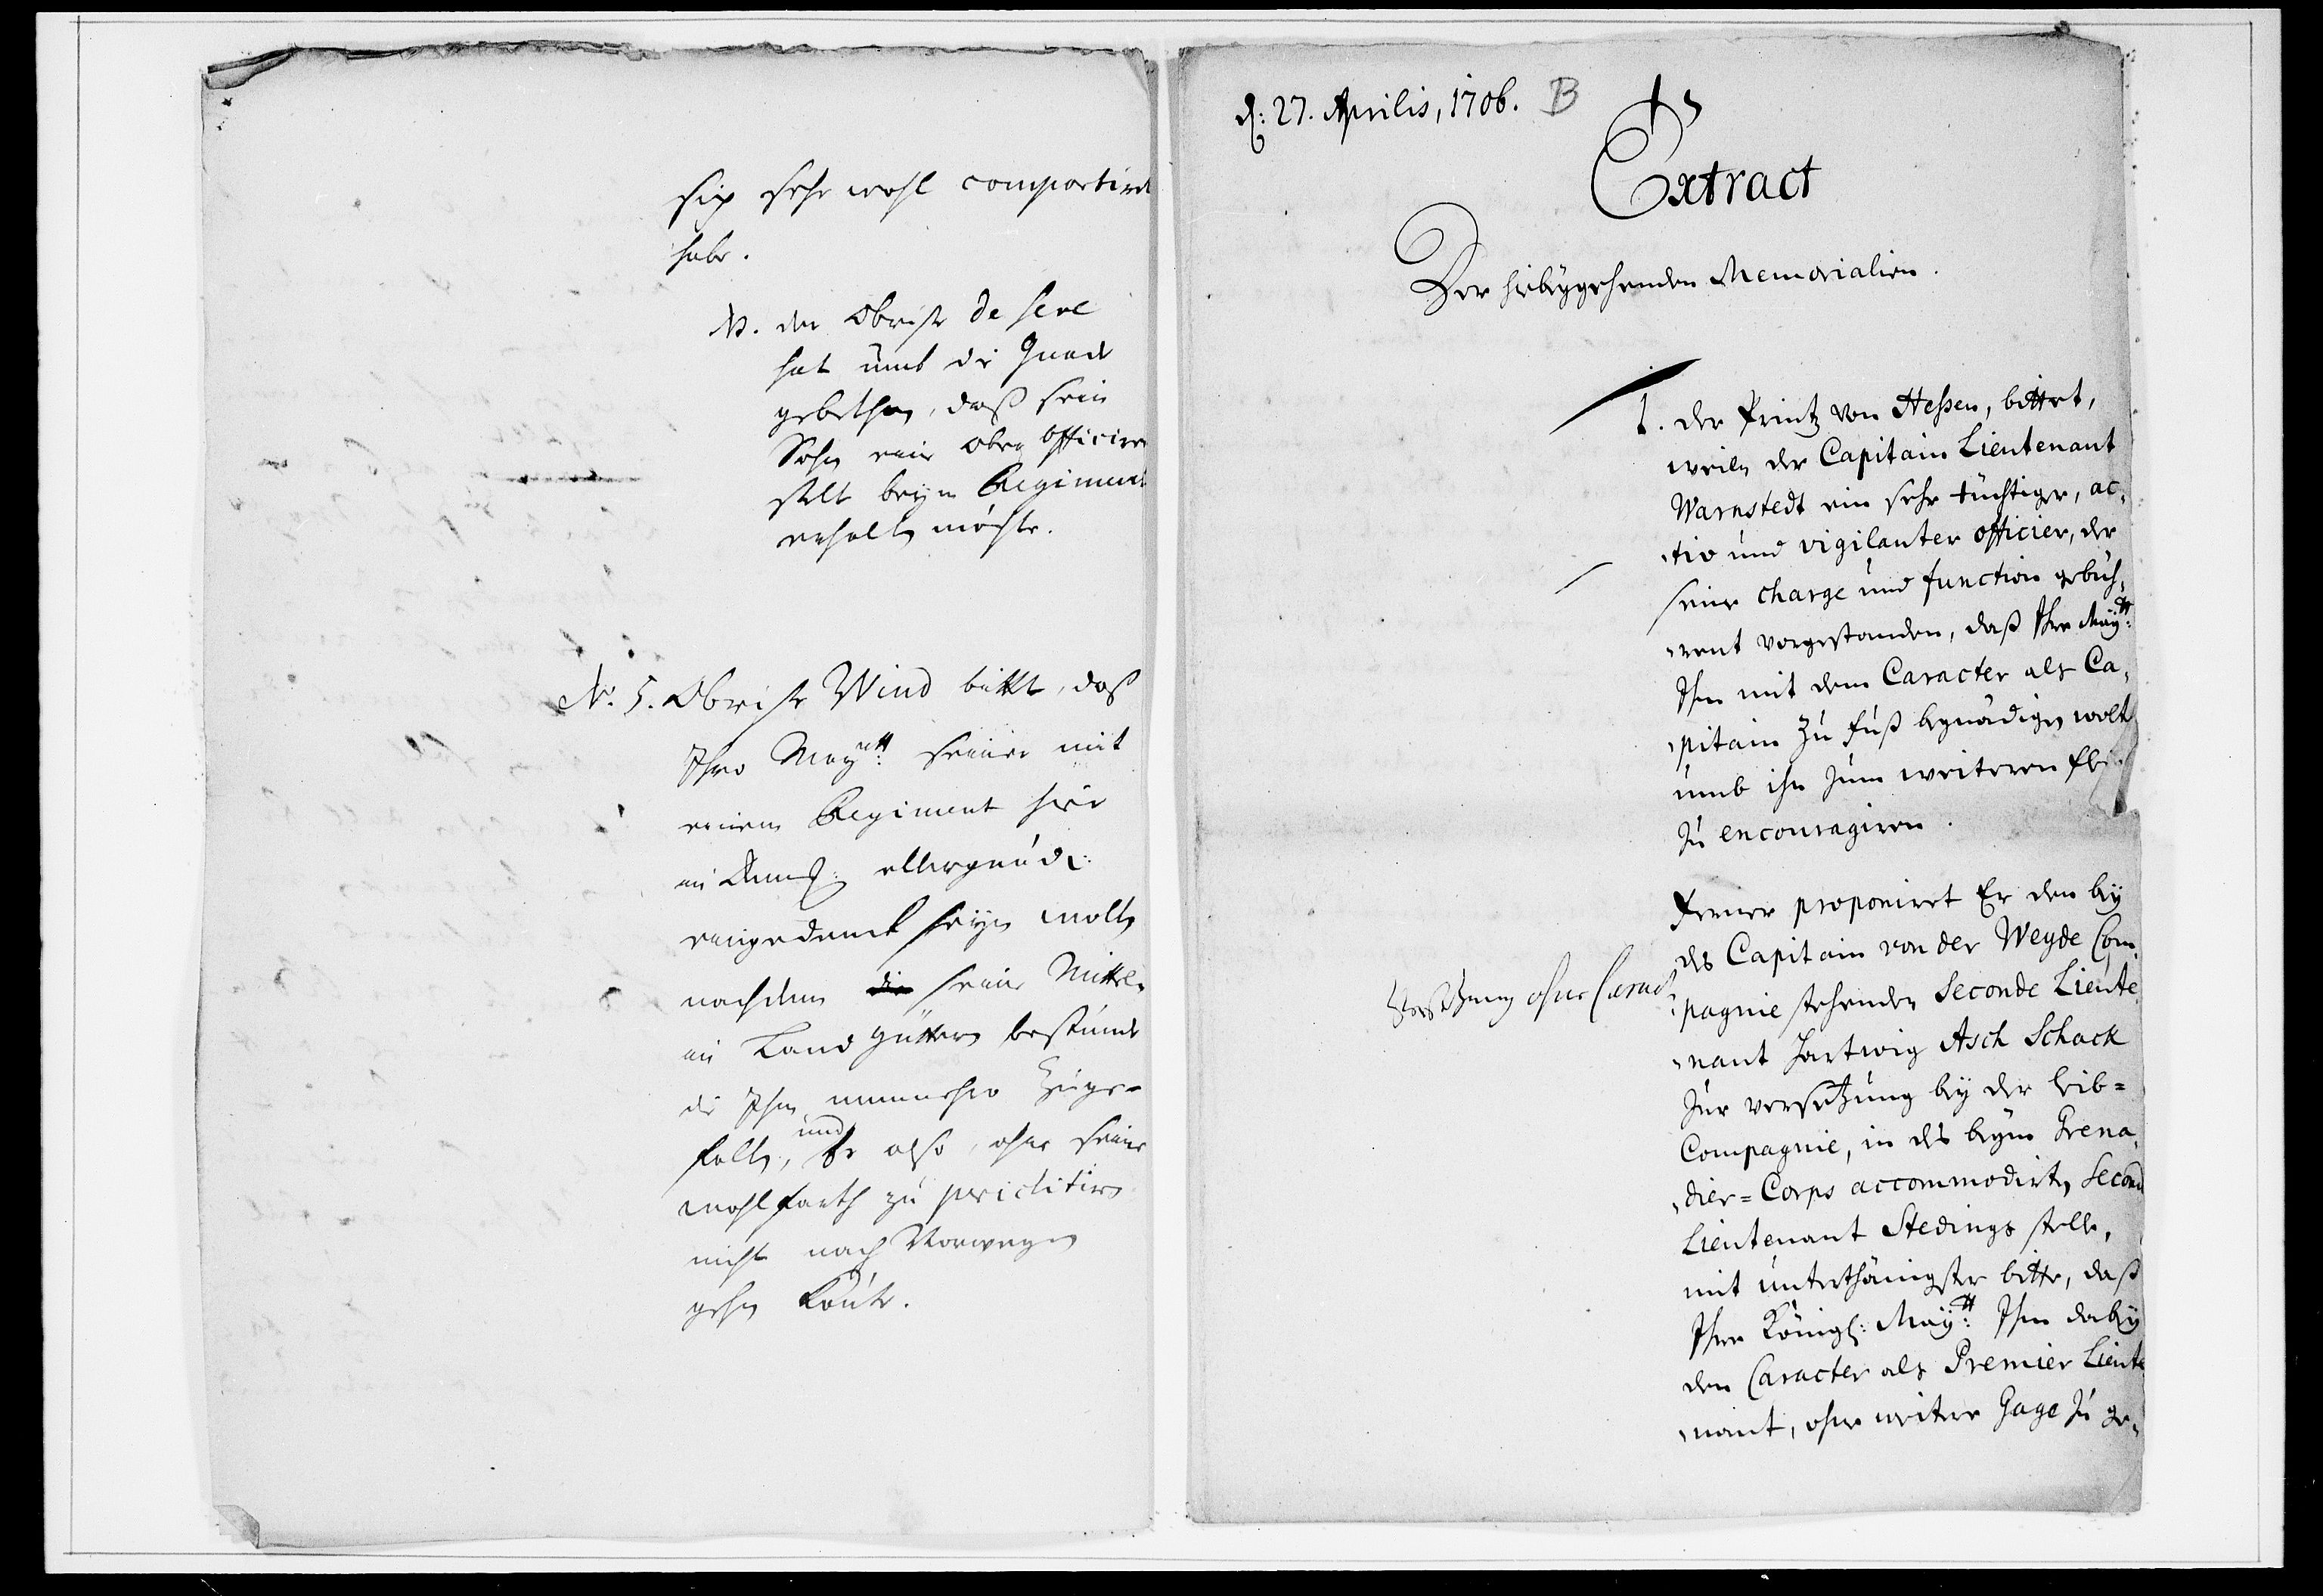 sich sehr wohl comportiret
habe.
NB. der Obrist de Seve
hat umb die Gnade
gebethen, daß sein
Sohn eine ober Officirer
stelle beym Regiment
erhalten möchte.
No. 5. Obrister Wind bittet, daß
Ihro Maytt: seiner mit
einem Regiment hier
in Dennem: allergnäd:
eingedenck seyn wolle
nachdem die seine Mittel
in Land Gütter bestünde
die Ihm nunmehro Zuge-
fallen, und Er also, ohne seine
wohlfarth zu pericilitiren
nicht nach Norwegen
gehen könte.
d: 27. Aprilis, 1706. B
Extract
Der hiebeygehenden Memorialien.
1. der Printz von Hessen, bittet,
weiln der Capitain Lieutenant
Warnstedt ein sehr tüchtiger, ac-
tiv und vigilanter officier, der
seine charge und function gebüh-
rent vorgestanden, daß Ihre Maytt:
Ihm mit dem Caracter als Ca-
pitain zu Fuß begnädigen wolt
umb ihn zum weiteren flei
zu encouragiren.
Ferner proponiret Er den bey
des Capitain von der Weyde Com
pagnie stehenden Seconde Lieute
nant Hartwig Asch Schack
zur versetzung bey der Leib=
Compagnie, in des beym Grena-
dier=Corps accommodirten Second
Lieutenant Stedings stelle,
mit unterthänigster bitte, daß
Ihre Königl: Maytt: Ihm dabey
den Caracter als Premier Lieute
nant, ohne weitere Gage zu ge-
Versetzung ohne Caract: